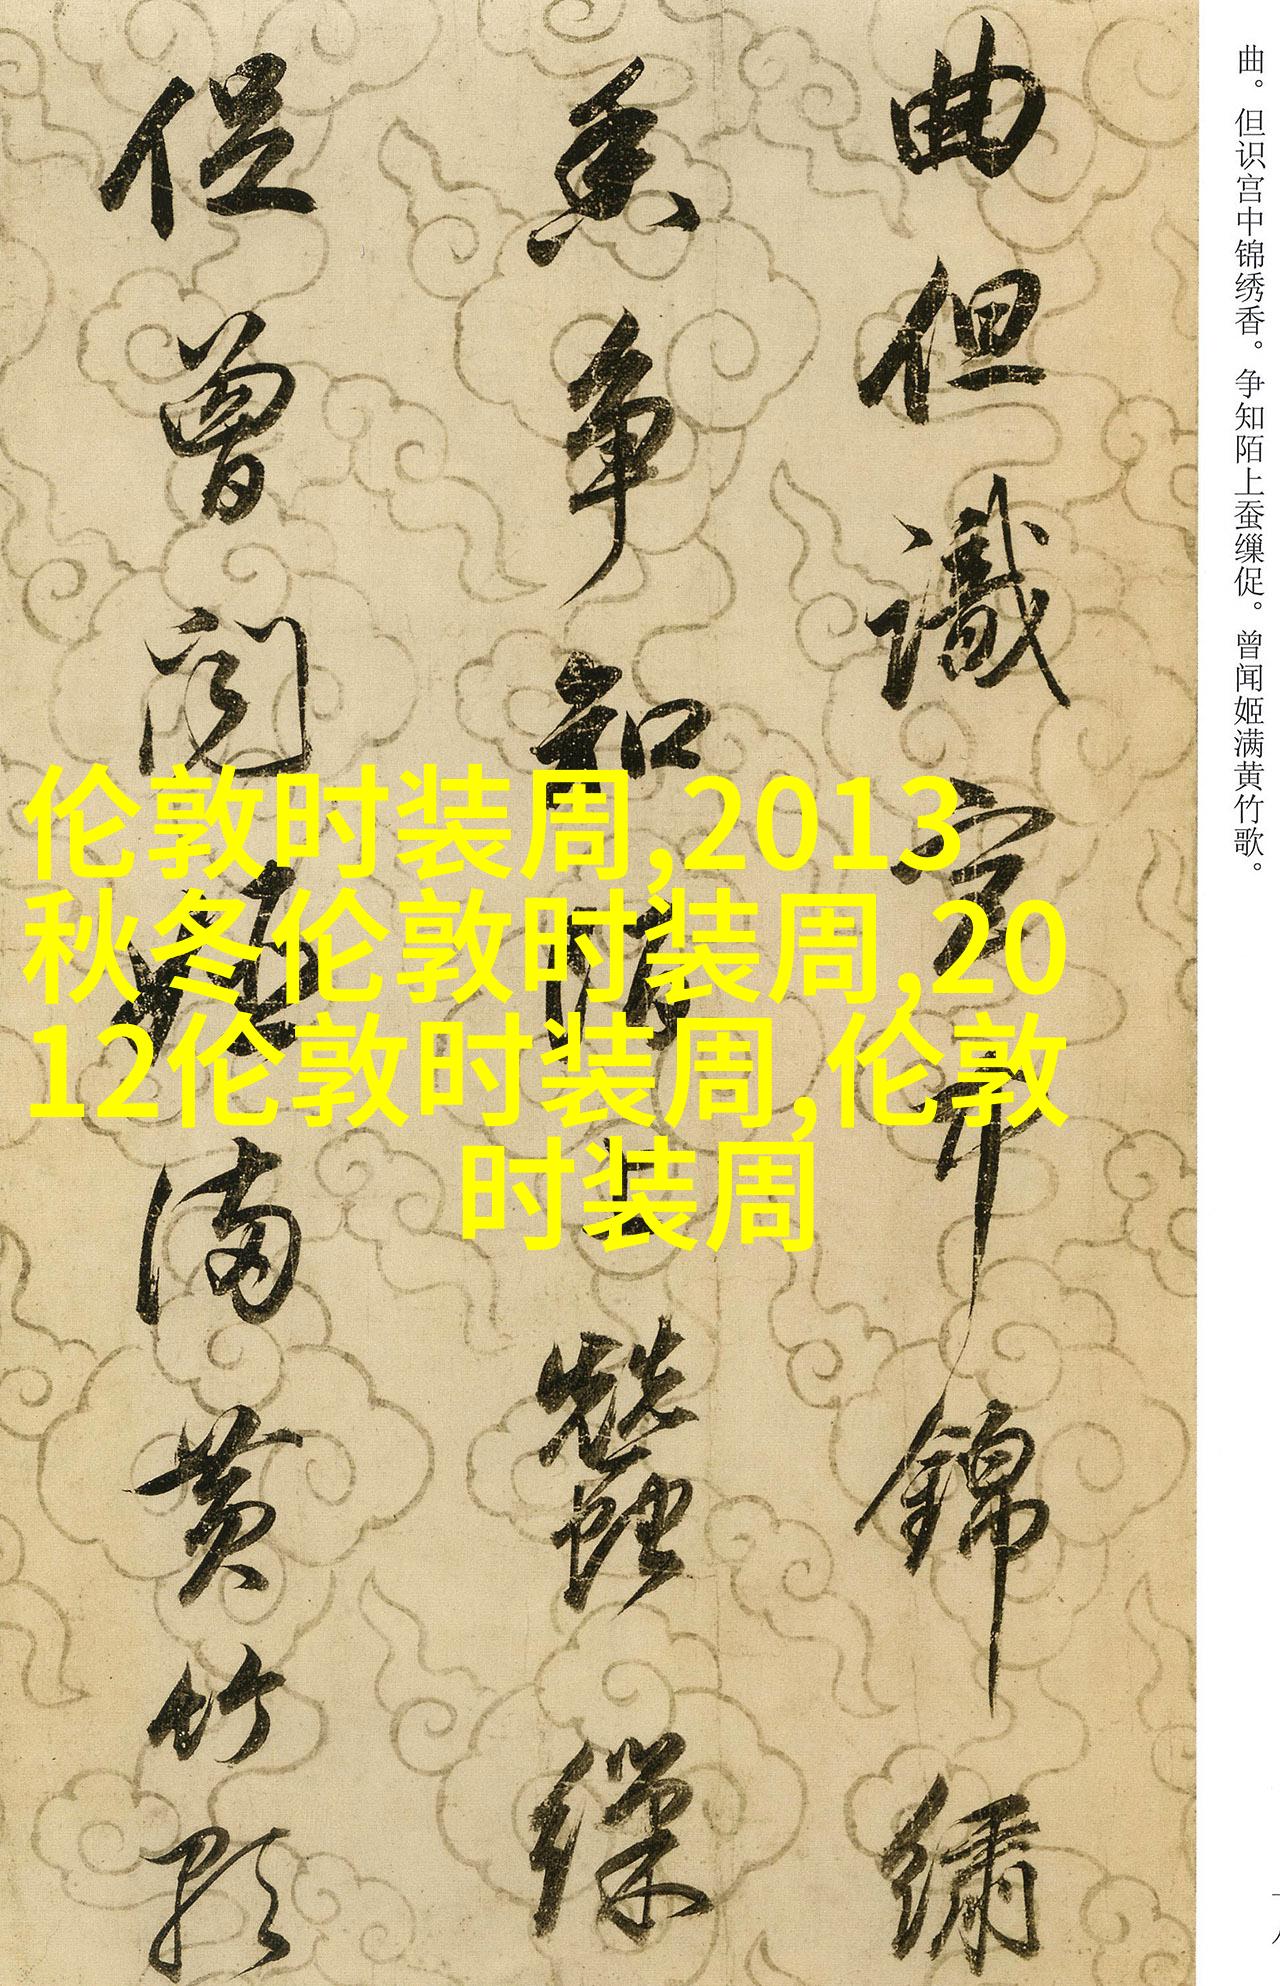 曲。但识宫中锦绣香。争知陌上蚕缫促。曾闻姬满黄竹歌。
曲但識宫中錦繡
香争知陌上蠶繅
促曾闻姬满黄竹歌
伦敦时装周,2013
秋冬伦敦时装周,20
12伦敦时装周,伦敦
时装周